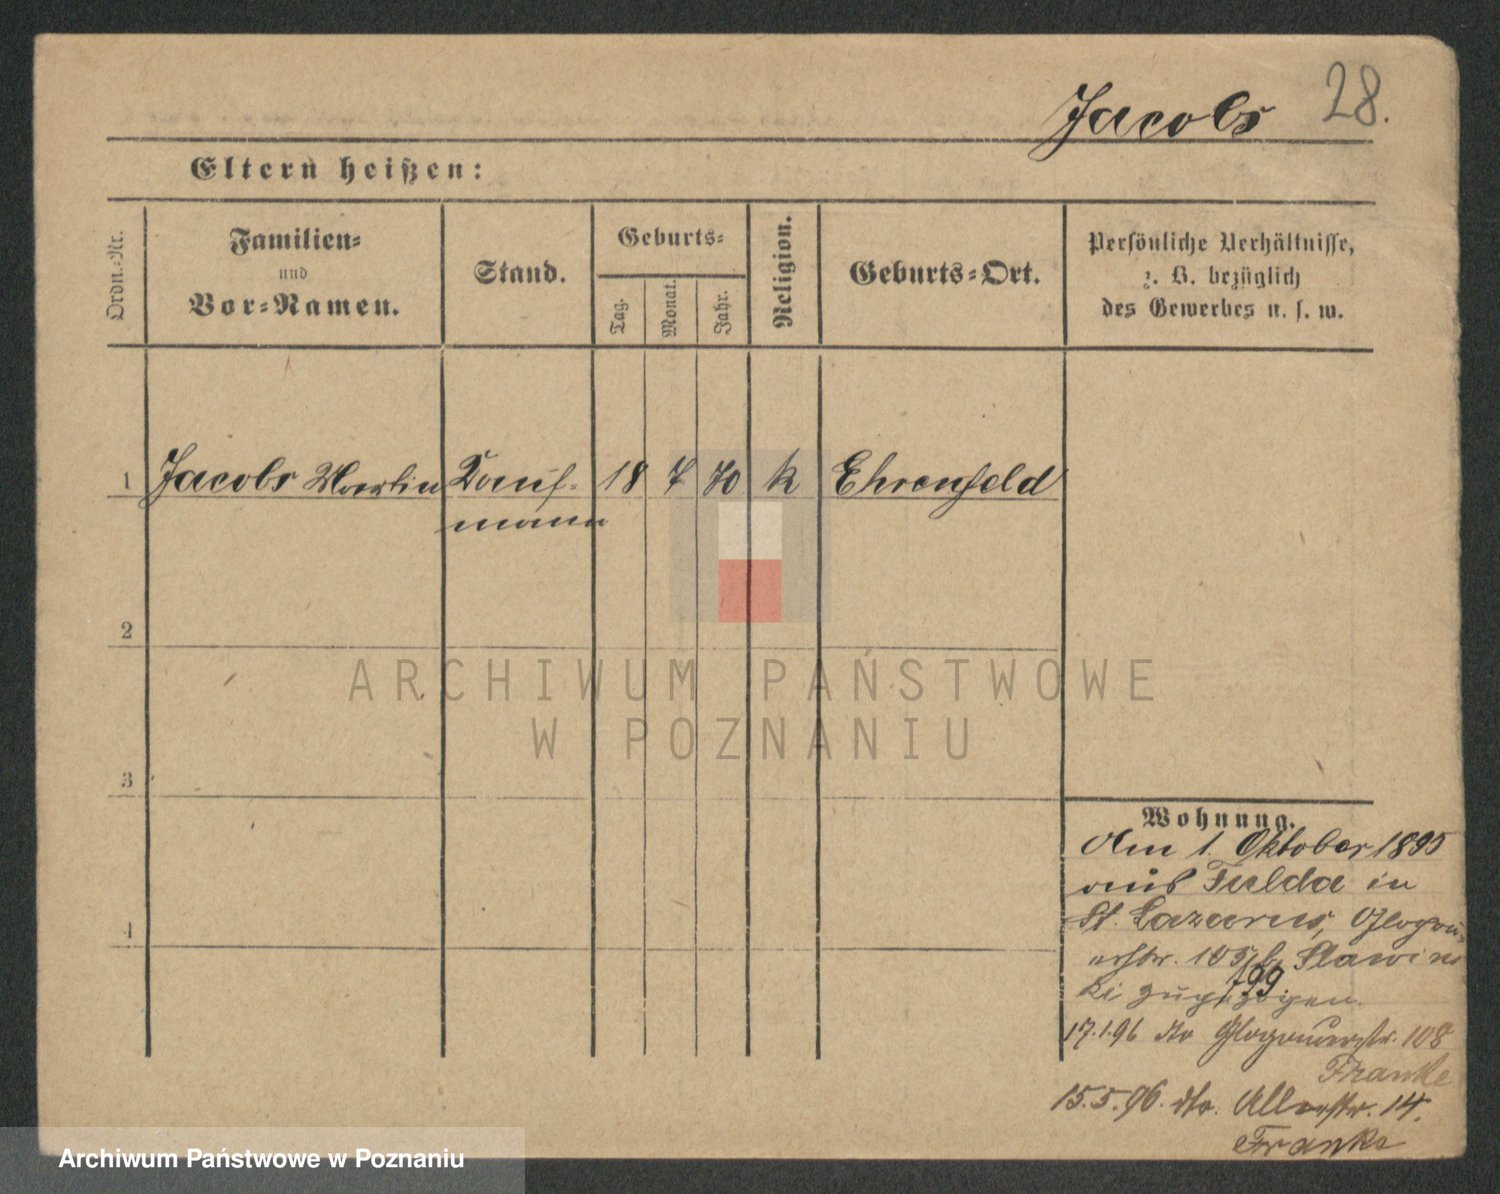 Jacobs 28.
Eltern heißen:
Ordn.-Nr.
Familien-
und
Vor-Namen.
Stand.
Geburts-
Tag.
Monat.
Jahr.
Religion.
Geburts-Ort.
Persönliche Verhältnisse,
z. B. bezüglich
des Gewerbes u. s. w.
1 Jacobs Martin Kauf- 18 7 70 k Ehrenfeld
mann
2
3
4
Wohnung.
Am 1. Oktober 1895
aus Fulda in
St. Lazarus, Glogau-
erstr. Slawins
ki zugezogen.
799
17.1.96 dto Glogauerstr. 108
Franke
15.5.96. dto. 14.
Franke
ARCHIWUM PAŃSTWOWE
W POZNANIU
Archiwum Państwowe w Poznaniu